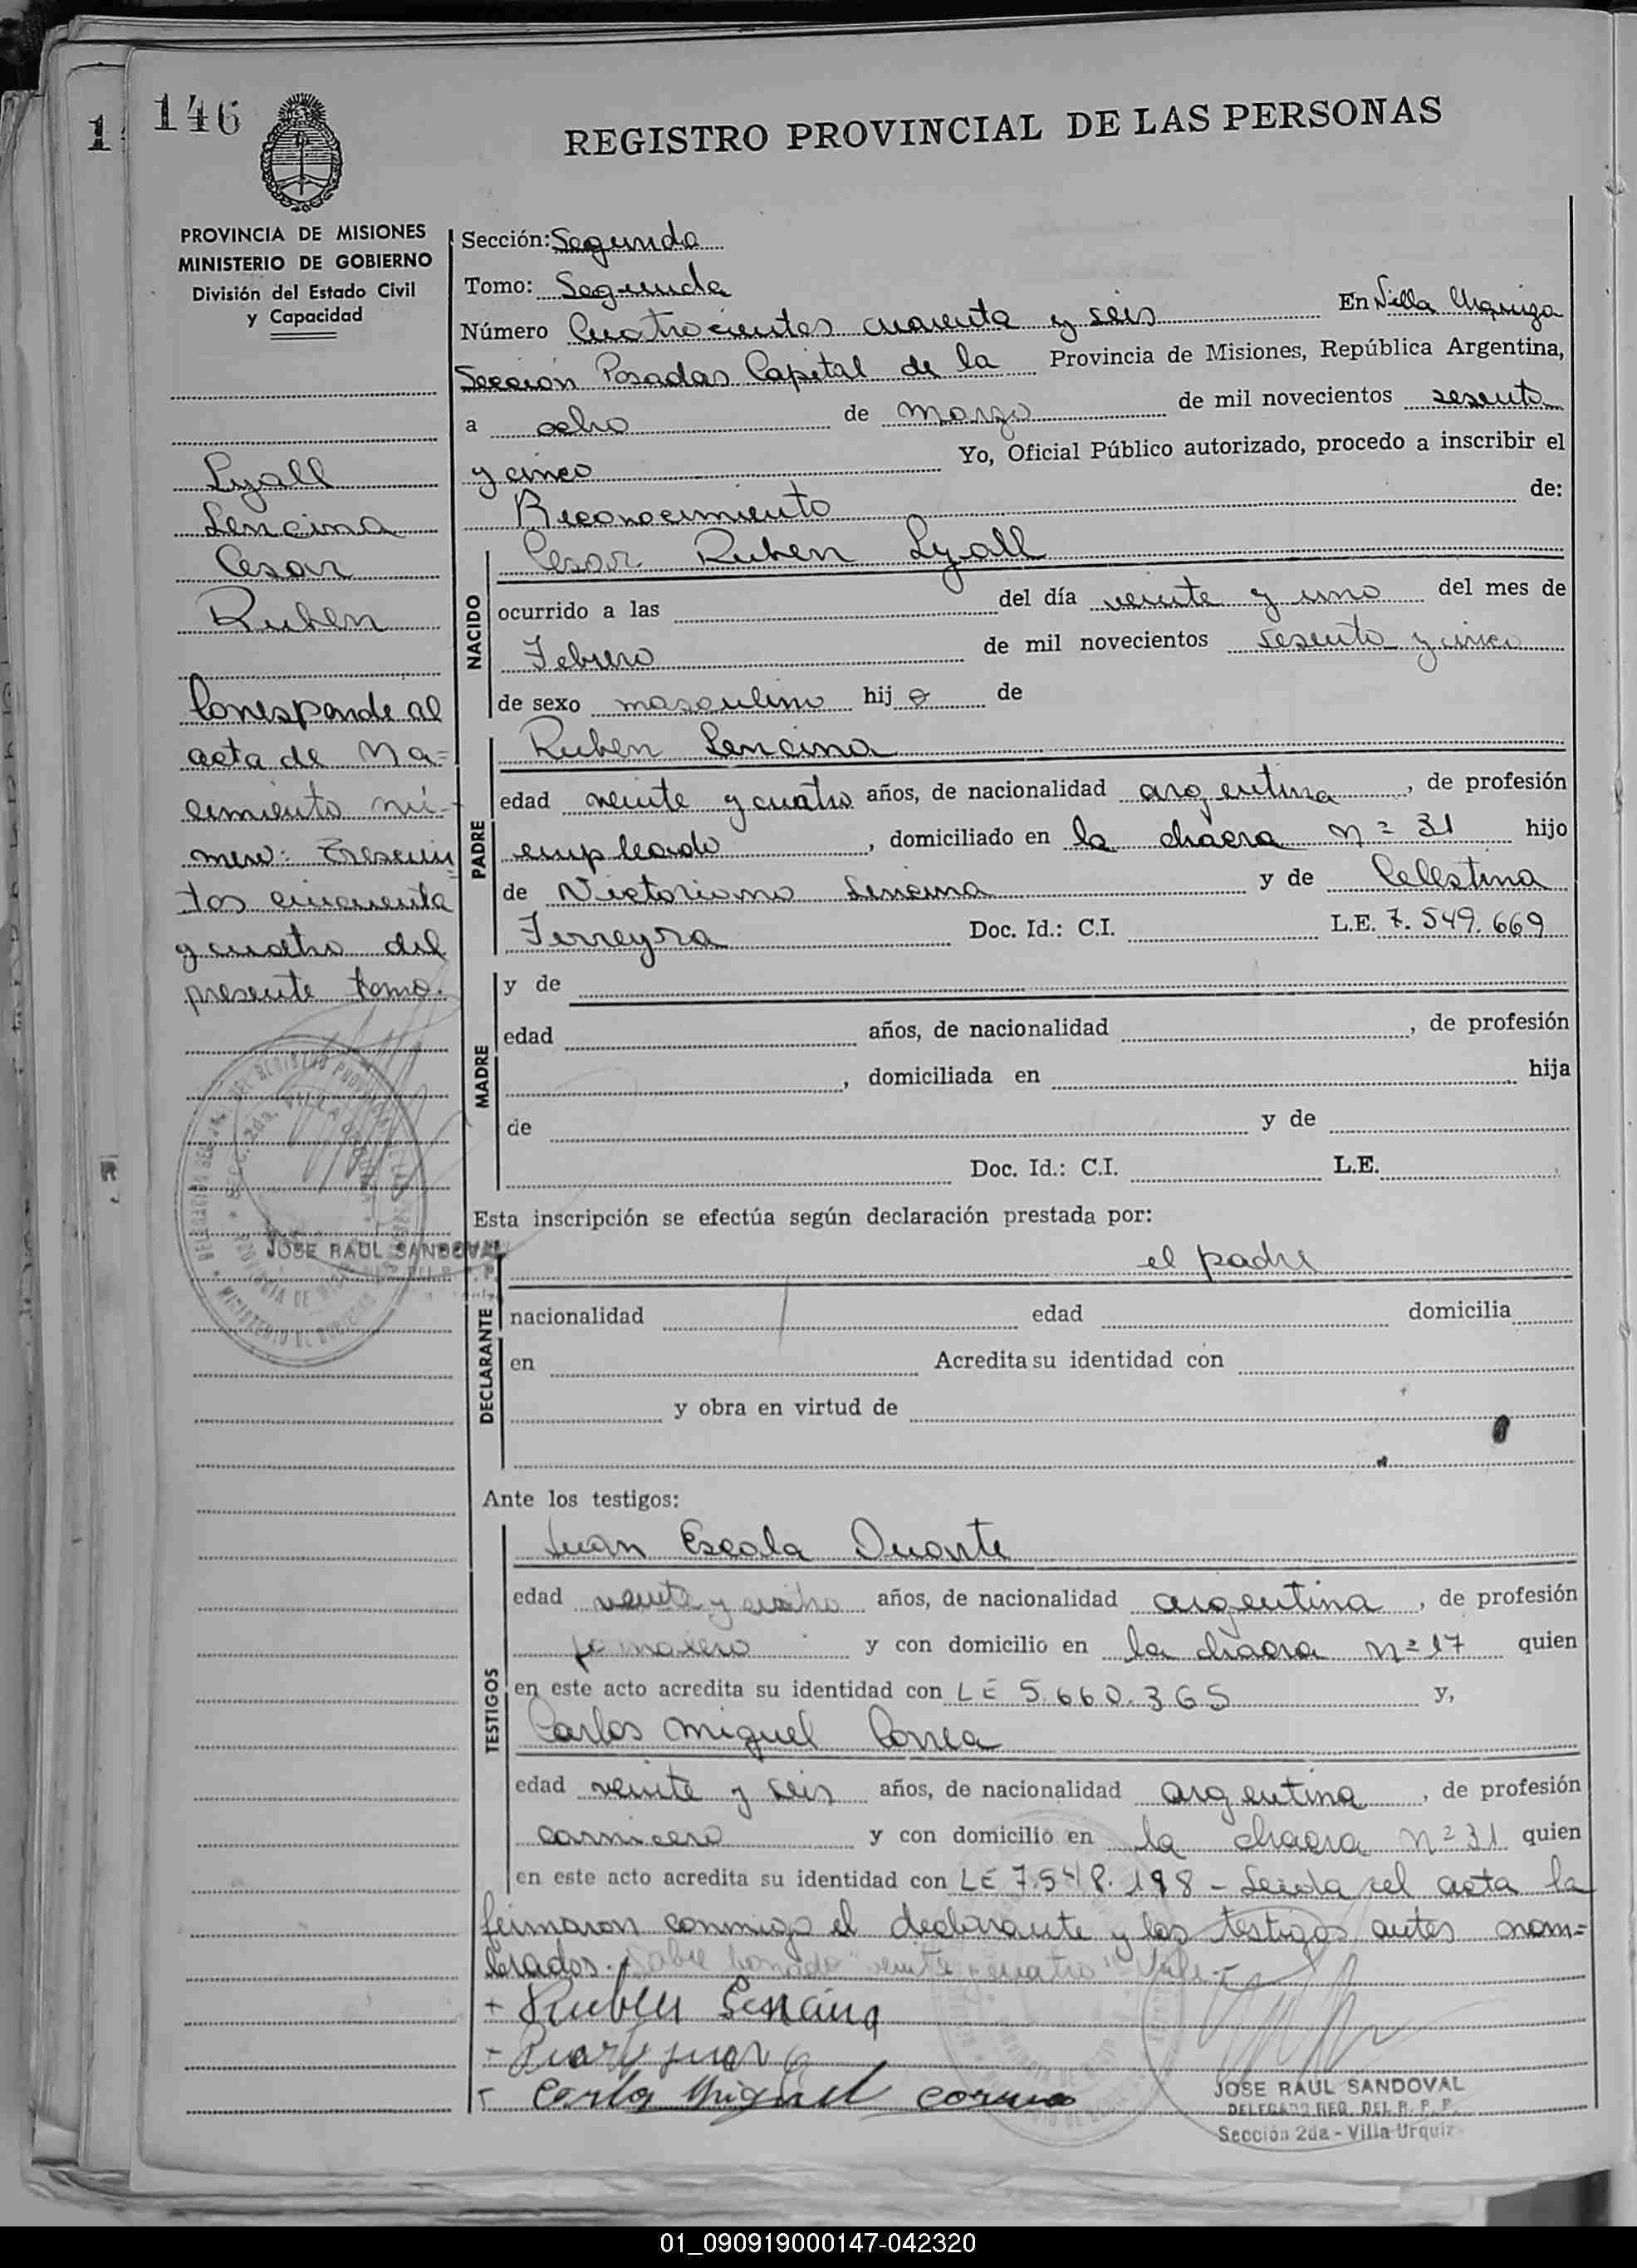 146
REGISTRO PROVINCIAL DE LAS PERSONAS
PROVINCIA DE MISIONES
MINISTERIO DE GOBIERNO
División del Estado Civil
y Capacidad
Lyall
Lencina
Cesar
Ruben
Corresponde al
acta de Na=
cimiento nú-
mero: Trescien
tos cincuenta
y cuatro del
presente tomo.
JOSE RAUL SANDOVAL
Sección: Segunda
Tomo: Segunda
Número Cuatrocientos cuarenta y seis En Villa Urquiza
Sección Posadas Capital de la Provincia de Misiones, República Argentina,
a ocho de marzo de mil novecientos sesenta
y cinco Yo, Oficial Público autorizado, procedo a inscribir el
Reconocimiento de:
NACIDO
Cesar Ruben Lyall
ocurrido a las del día veinte y uno del mes de
Febrero de mil novecientos sesenta y cinco
de sexo masculino hij o de
PADRE
Ruben Lencina
edad veinte y cuatro años, de nacionalidad argentina, de profesión
empleado, domiciliado en la chacra nº 31 hijo
de Victoriano Lencina y de Celestina
Ferreyra Doc. Id.: C.I. L.E. 7.549.669
MADRE
y de
edad años, de nacionalidad , de profesión
, domiciliada en hija
de y de
Doc. Id.: C.I. L.E.
Esta inscripción se efectúa según declaración prestada por:
DECLARANTE
el padre
nacionalidad edad domicilia
en Acredita su identidad con
y obra en virtud de
Ante los testigos:
TESTIGOS
Juan Escola Duarte
edad veinte y cuatro años, de nacionalidad argentina, de profesión
jornalero y con domicilio en la chacra nº 17 quien
en este acto acredita su identidad con LE 5.660.365 y,
Carlos Miguel Correa
edad veinte y seis años, de nacionalidad argentina, de profesión
carnicero y con domicilio en la chacra nº 31 quien
en este acto acredita su identidad con LE 7.548.198 - Leida el acta la
firmaron conmigo el declarante y los testigos antes nom=
brados. Sobre borrado "veinte y cuatro" Vale.-
+ Ruben Lencina
Carlos Miguel Correa
JOSE RAUL SANDOVAL
DELEGADO REG. DEL R. P. P.
Sección 2da - Villa Urquiz
01_090919000147-042320